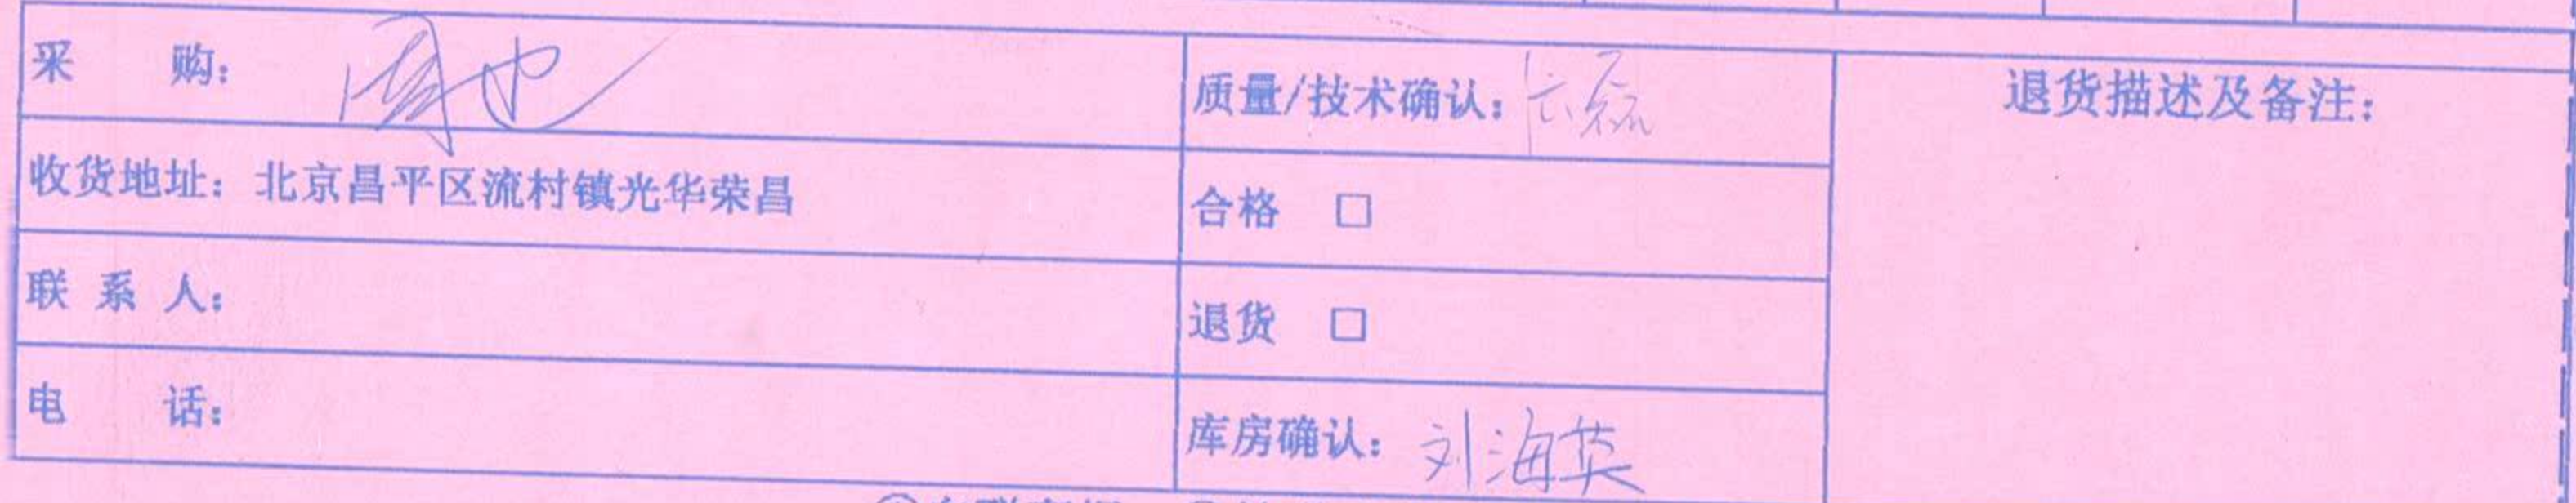 采 购：
质量/技术确认：
退货描述及备注：
收货地址：北京昌平区流村镇光华荣昌
合格 □
联 系 人：
退货 □
电 话：
库房确认：刘海英